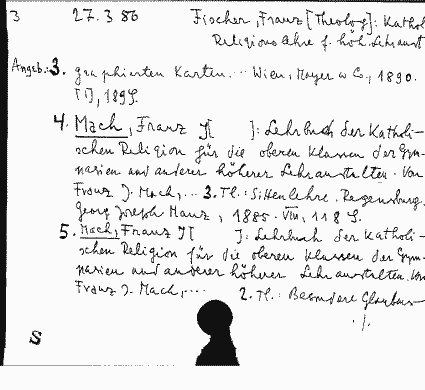 3 27.3.86 Fischer, Franz [Theolog]: Kathol
Religionslehre f. höh. Lehranst
Angeb.: 3. graphierten Karten. .. Wien, Mayer u Co., 1890.
[1], 189 S.
4. Mach, Franz J[ ]: Lehrbuch der Katholi-
schen Religion für die oberen Klassen der Gym-
nasien und anderer höherer Lehranstalten. Von
Franz J. Mach, ... 3. Tl.: Sittenlehre. Regensburg,
Georg Joseph Manz, 1885. VIII, 118 S.
5. Mach, Franz J[ ]: Lehrbuch der Katholi-
schen Religion für die oberen Klassen der Gym-
nasien und anderer höherer Lehranstalten. Von
Franz J. Mach, ... 2. Tl.: Besondere Glaubens-
./.
S